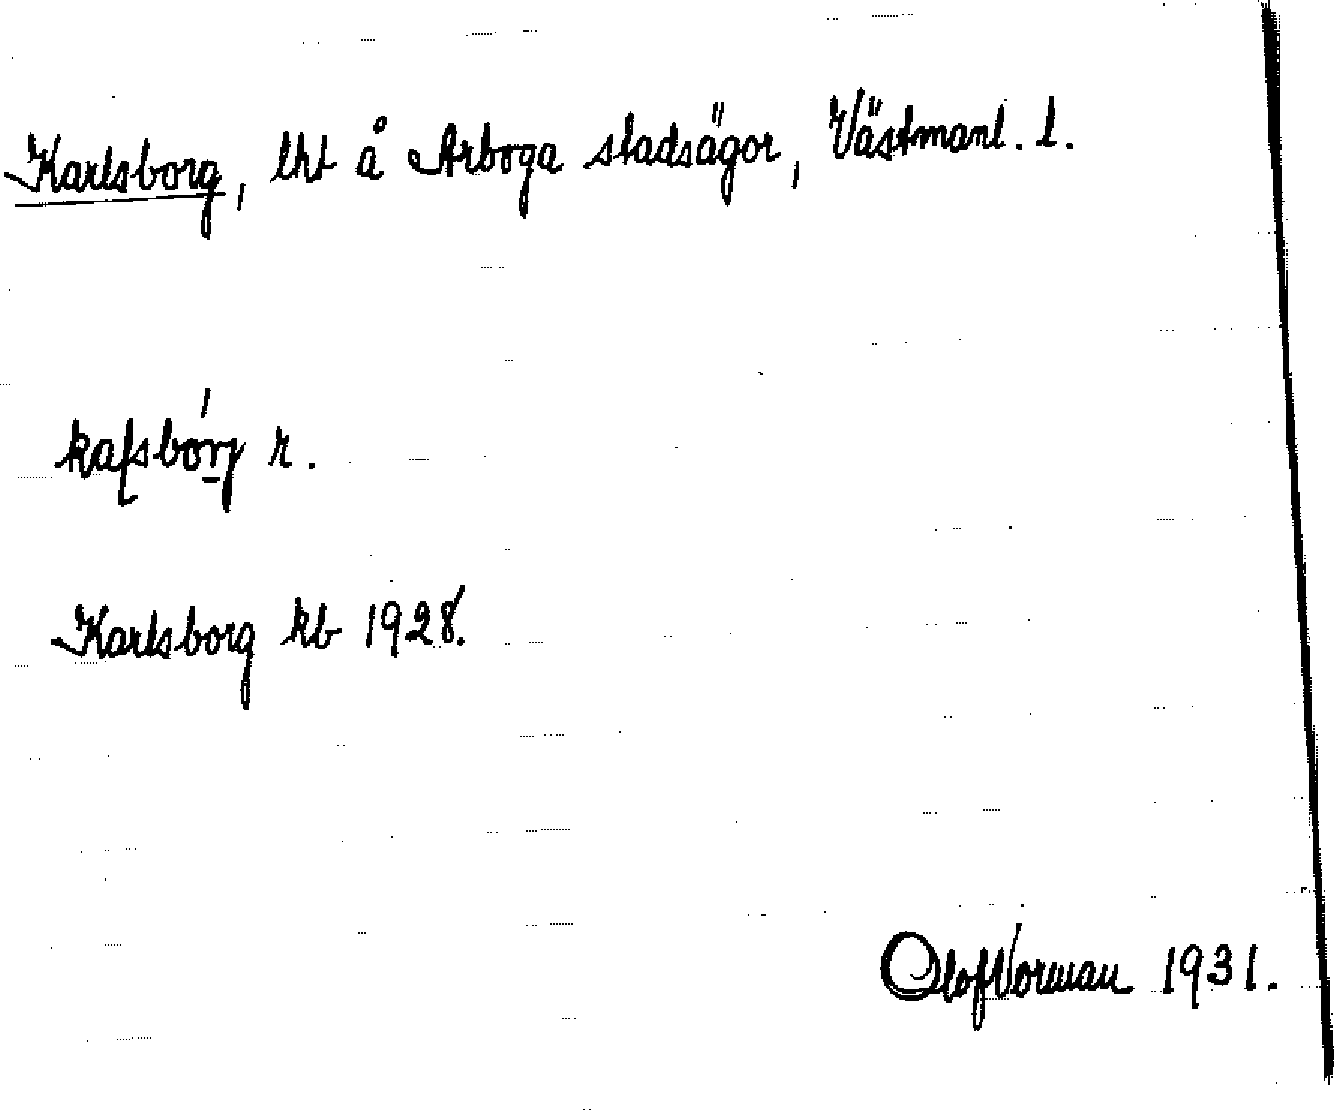 Karlsborg, lht å Arboga stadsägor, Västmanl. l.
r.
Karlsborg kb 1928.
Olof Norman 1931.